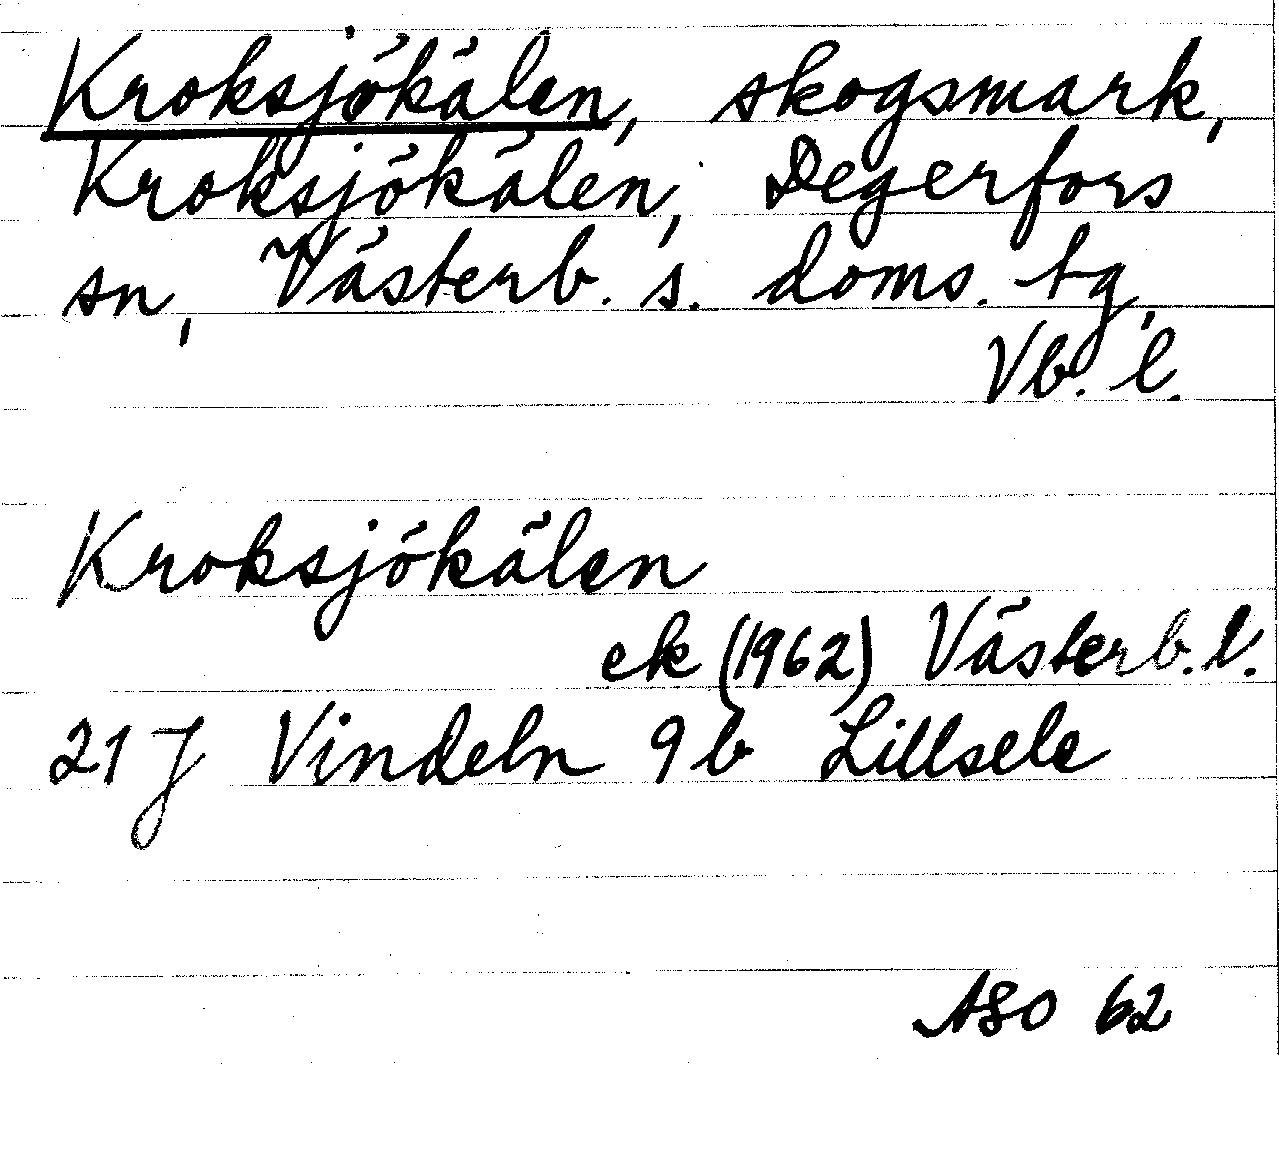 Kroksjökälen, skogsmark,
Kroksjökälen, Degerfors
sn, Västerb. s. doms. tg,
Vb. l.
Kroksjökälen
ek (1962) Västerb. l.
21 J Vindeln 9 b Lillsele
ASO 62